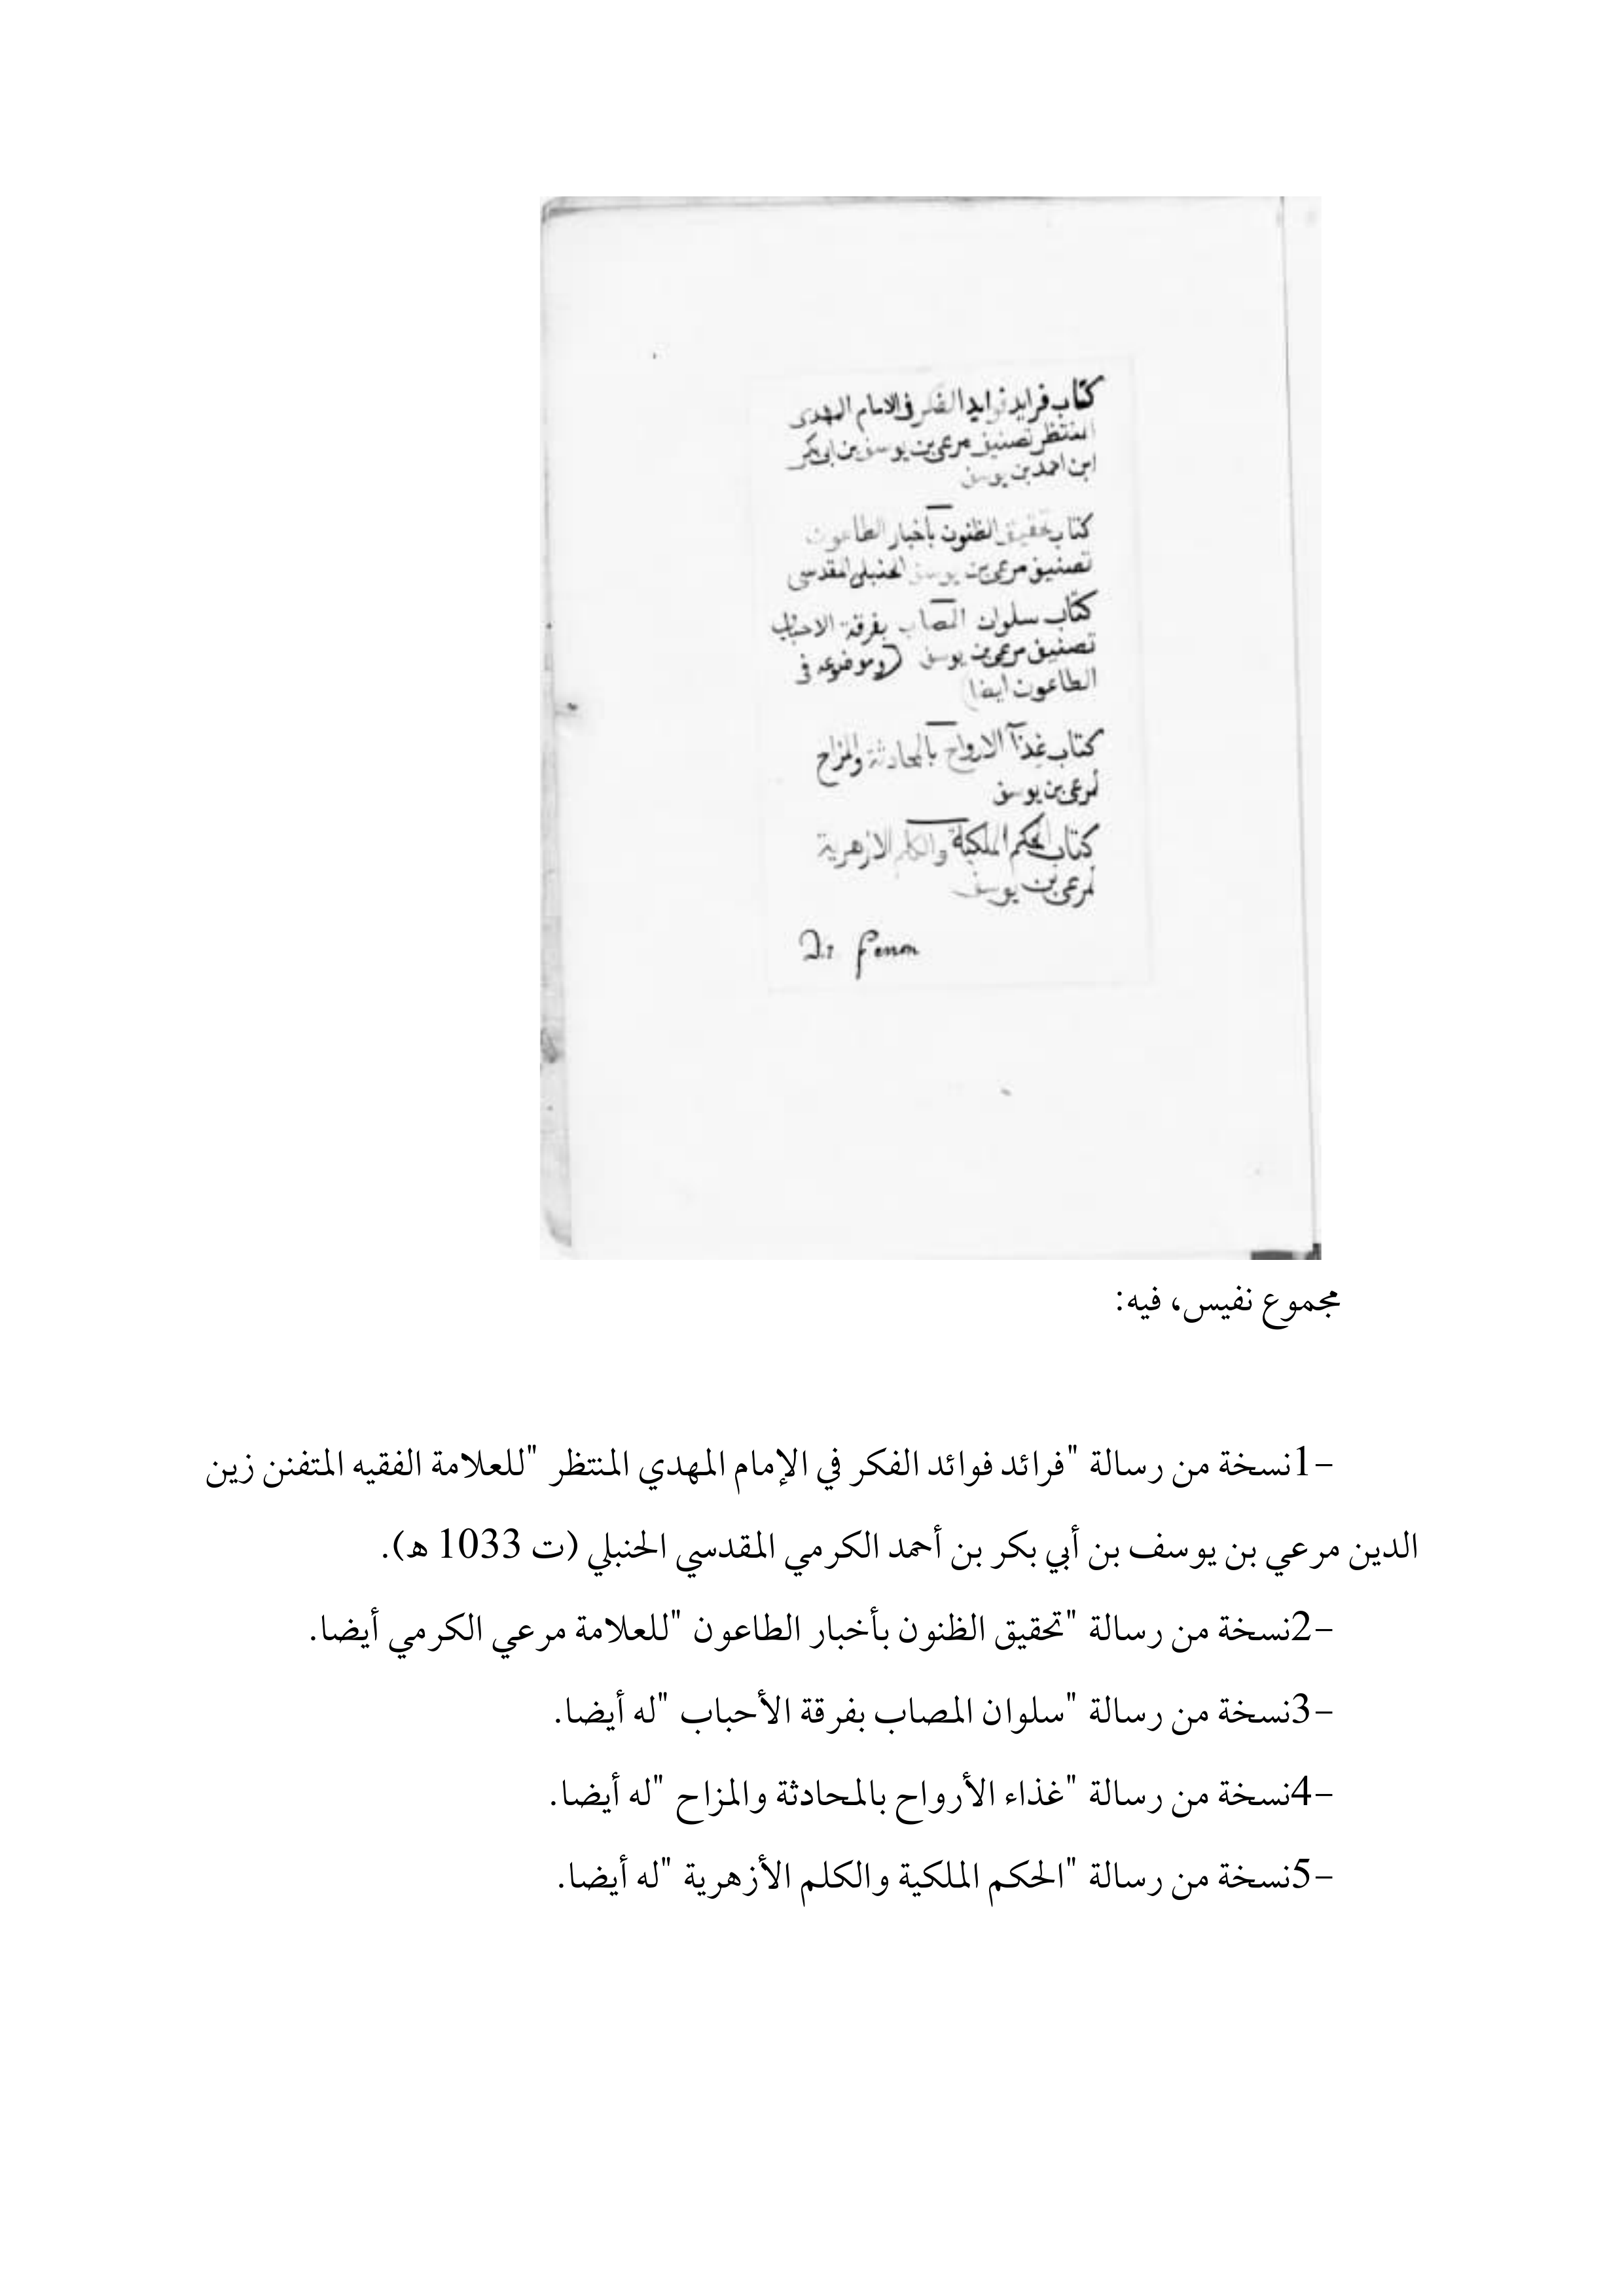 كتاب فرايد فوايد الفكر في الامام المهدى
المنتظر تصنيف مرعى بن يوسف بن ابى بكر
ابن احمد بن يوسف
كتاب تحقيق الظنون بأخبار الطاعون
تصنيف مرعى بن يوسف الحنبلى المقدسى
كتاب سلوان المصاب بفرقة الاحباب
تصنيف مرعى بن يوسف (وموضوعه فى
الطاعون ايضا)
كتاب غذآ الارواح بالمحادثة والمزاح
لمرعى بن يوسف
كتاب الحكم الملكية والكلم الازهرية
لمرعى بن يوسف
مجموع نفيس، فيه:
-1نسخة من رسالة "فرائد فوائد الفكر في الإمام المهدي المنتظر "للعلامة الفقيه المتفنن زين
الدين مرعي بن يوسف بن أبي بكر بن أحمد الكرمي المقدسي الحنبلي (ت 1033 ه).
-2نسخة من رسالة "تحقيق الظنون بأخبار الطاعون "للعلامة مرعي الكرمي أيضا.
-3نسخة من رسالة "سلوان المصاب بفرقة الأحباب "له أيضا.
-4نسخة من رسالة "غذاء الأرواح بالمحادثة والمزاح "له أيضا.
-5نسخة من رسالة "الحكم الملكية والكلم الأزهرية "له أيضا.